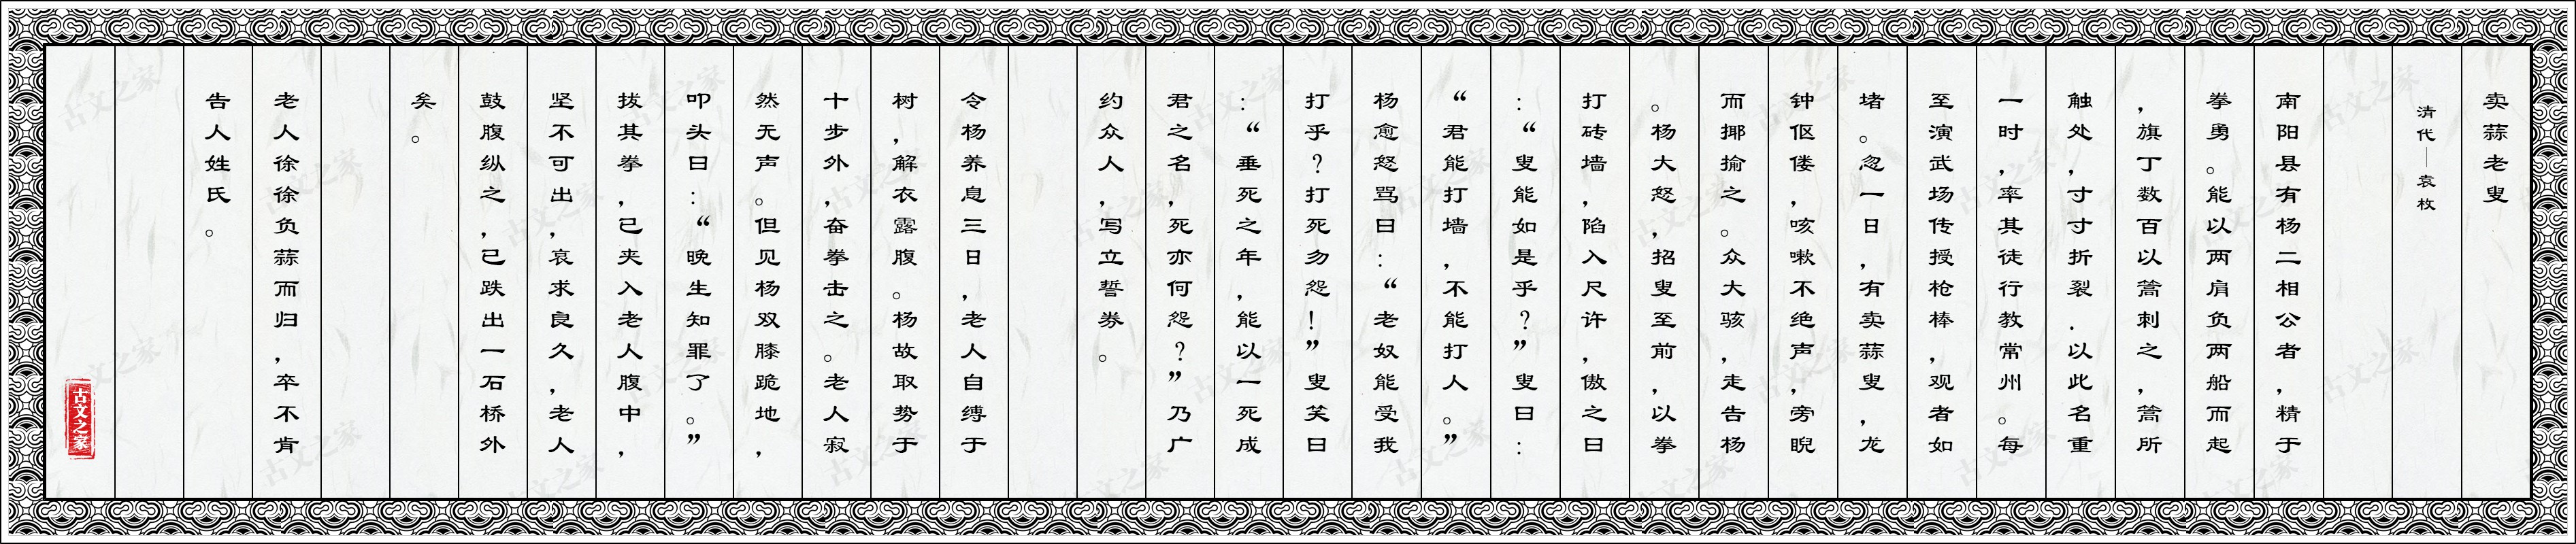 卖蒜老叟
清代——袁枚
南阳县有杨二相公者，精于
拳勇。能以两肩负两船而起
，旗丁数百以篙刺之，篙所
触处，寸寸折裂．以此名重
一时，率其徒行教常州。每
至演武场传授枪棒，观者如
堵。忽一日，有卖蒜叟，龙
钟伛偻，咳嗽不绝声，旁睨
而揶揄之。众大骇，走告杨
。杨大怒，招叟至前，以拳
打砖墙，陷入尺许，傲之曰
：“叟能如是乎？”叟曰：
“君能打墙，不能打人。”
杨愈怒骂曰：“老奴能受我
打乎？打死勿怨！”叟笑曰
：“垂死之年，能以一死成
君之名，死亦何怨？”乃广
约众人，写立誓券。
令杨养息三日，老人自缚于
树，解衣露腹。杨故取势于
十步外，奋拳击之。老人寂
然无声。但见杨双膝跪地，
叩头曰：“晚生知罪了。”
拔其拳，已夹入老人腹中，
坚不可出，哀求良久，老人
鼓腹纵之，已跌出一石桥外
矣。
老人徐徐负蒜而归，卒不肯
告人姓氏。
古文之家